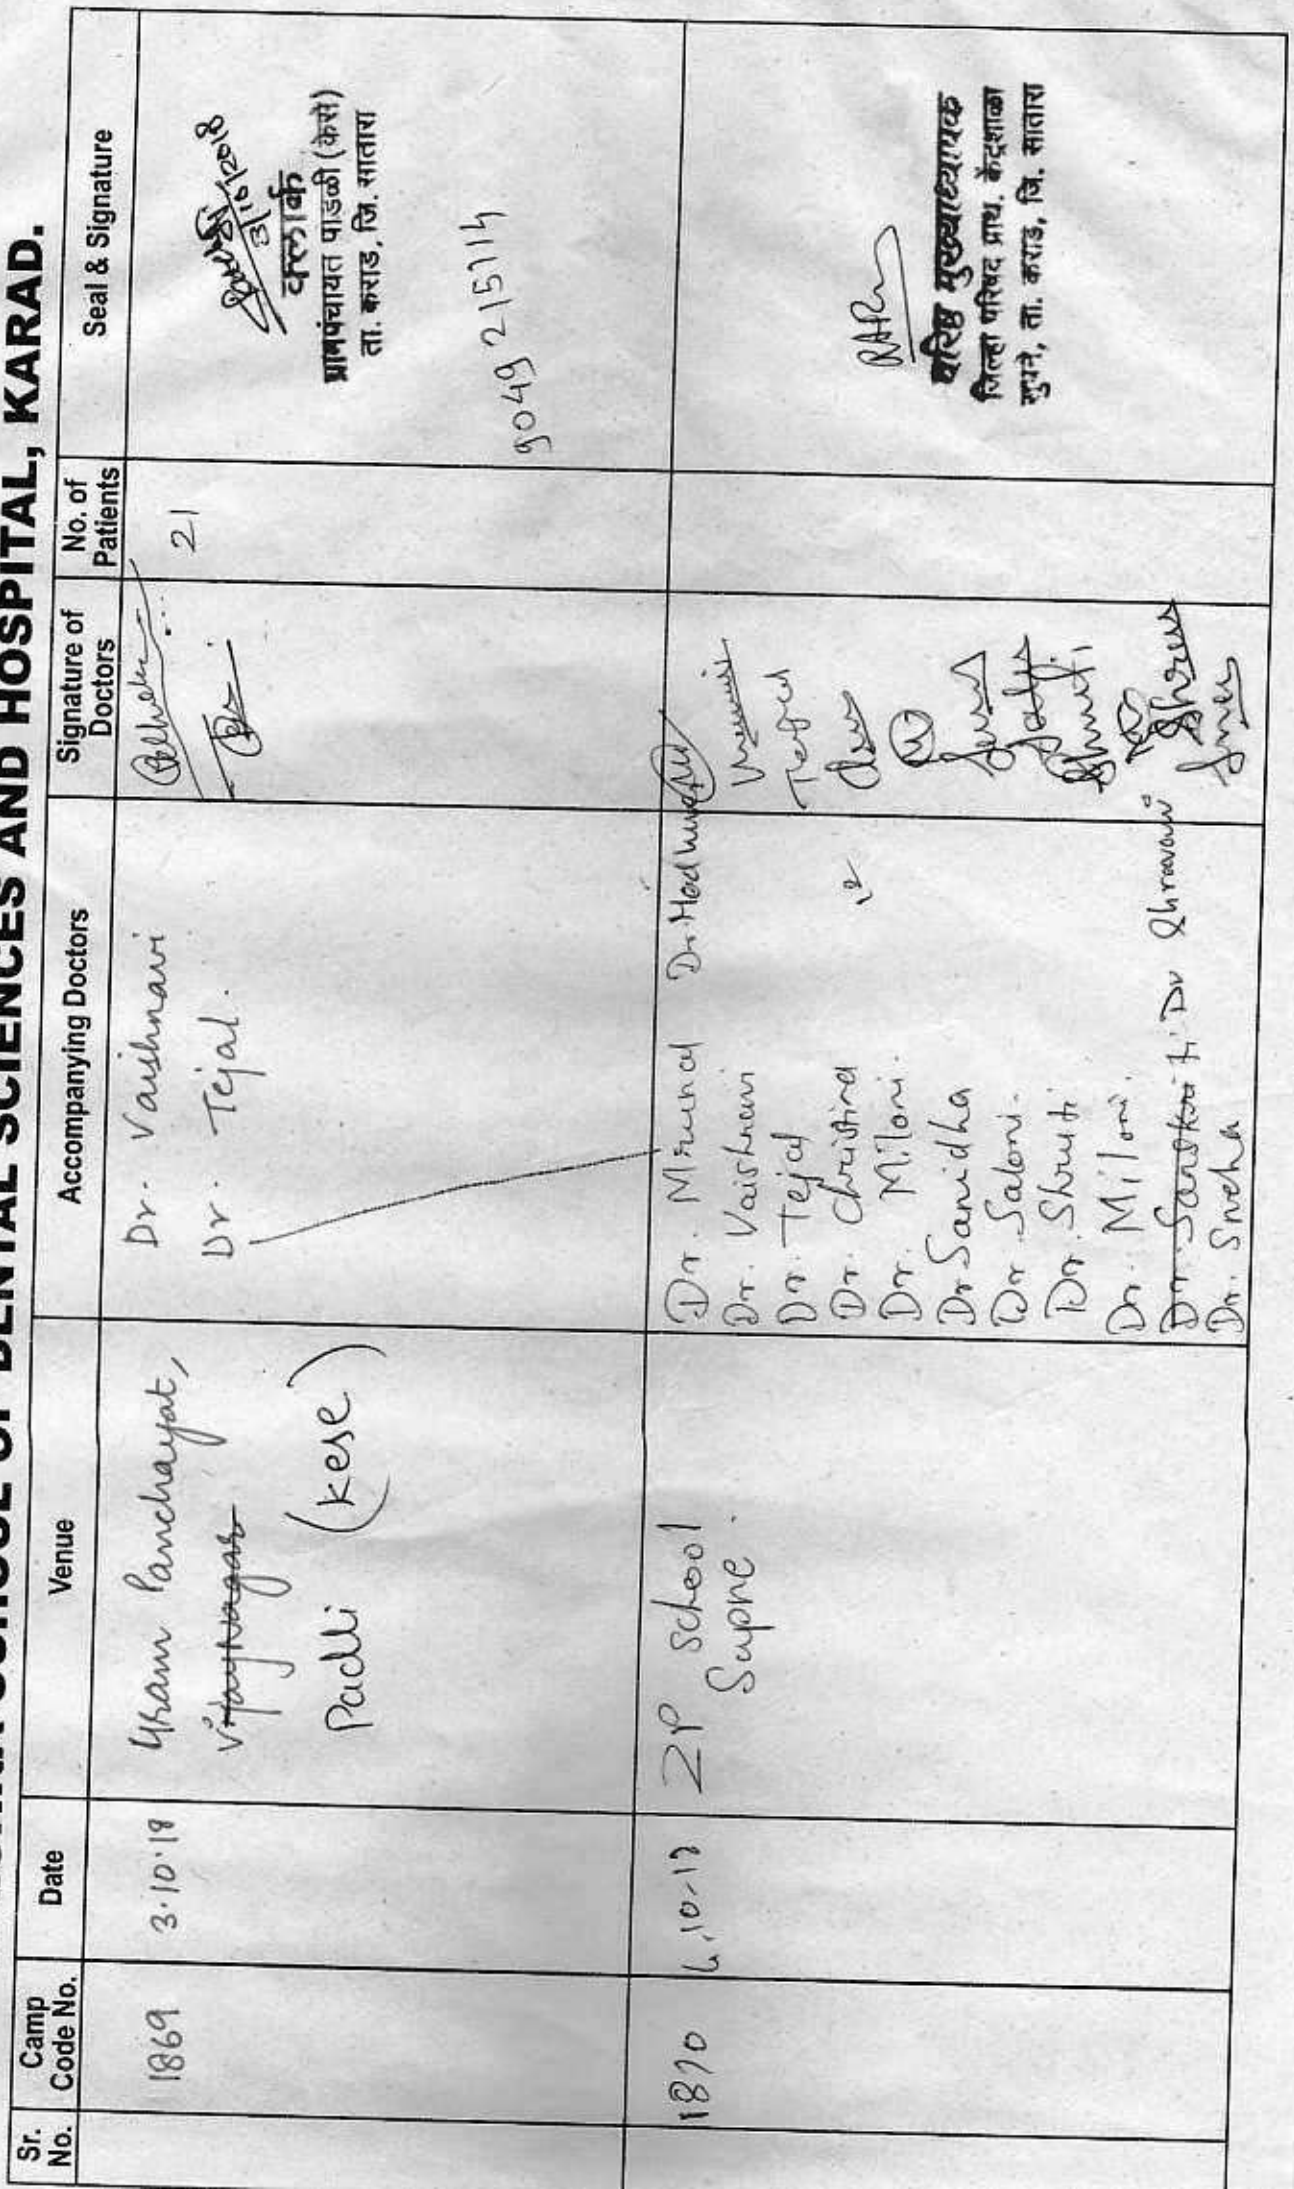 SCHOOL OF DENTAL SCIENCES AND HOSPITAL, KARAD.
Sr. No.
Camp Code No.
Date
Venue
Accompanying Doctors
Signature of Doctors
No. of Patients
Seal & Signature
1869
3.10.18
Gram Panchayat,
Vijaynagar
Padli (Kese)
Dr. Vaishnavi
Dr. Tejal.
21
3/10/2018
क्लार्क
ग्रामपंचायत पाडळी (केसे)
ता. कराड, जि. सातारा
9049215114
1870
ZP School
Supne.
Dr. Mrunal Dr. Madhura
Dr. Vaishnavi
Dr. Tejal
Dr. Christina
Dr. Miloni.
Dr. Sanidha
Dr. Saloni.
Dr. Shruti
Dr. Miloni.
Dr. Sanskriti Dr Shravani
Dr. Sneha
Tejal
Shruti
वरिष्ठ मुख्याध्यापक
जिल्हा परिषद प्राथ. केंद्रशाळा
सुपने, ता. कराड, जि. सातारा